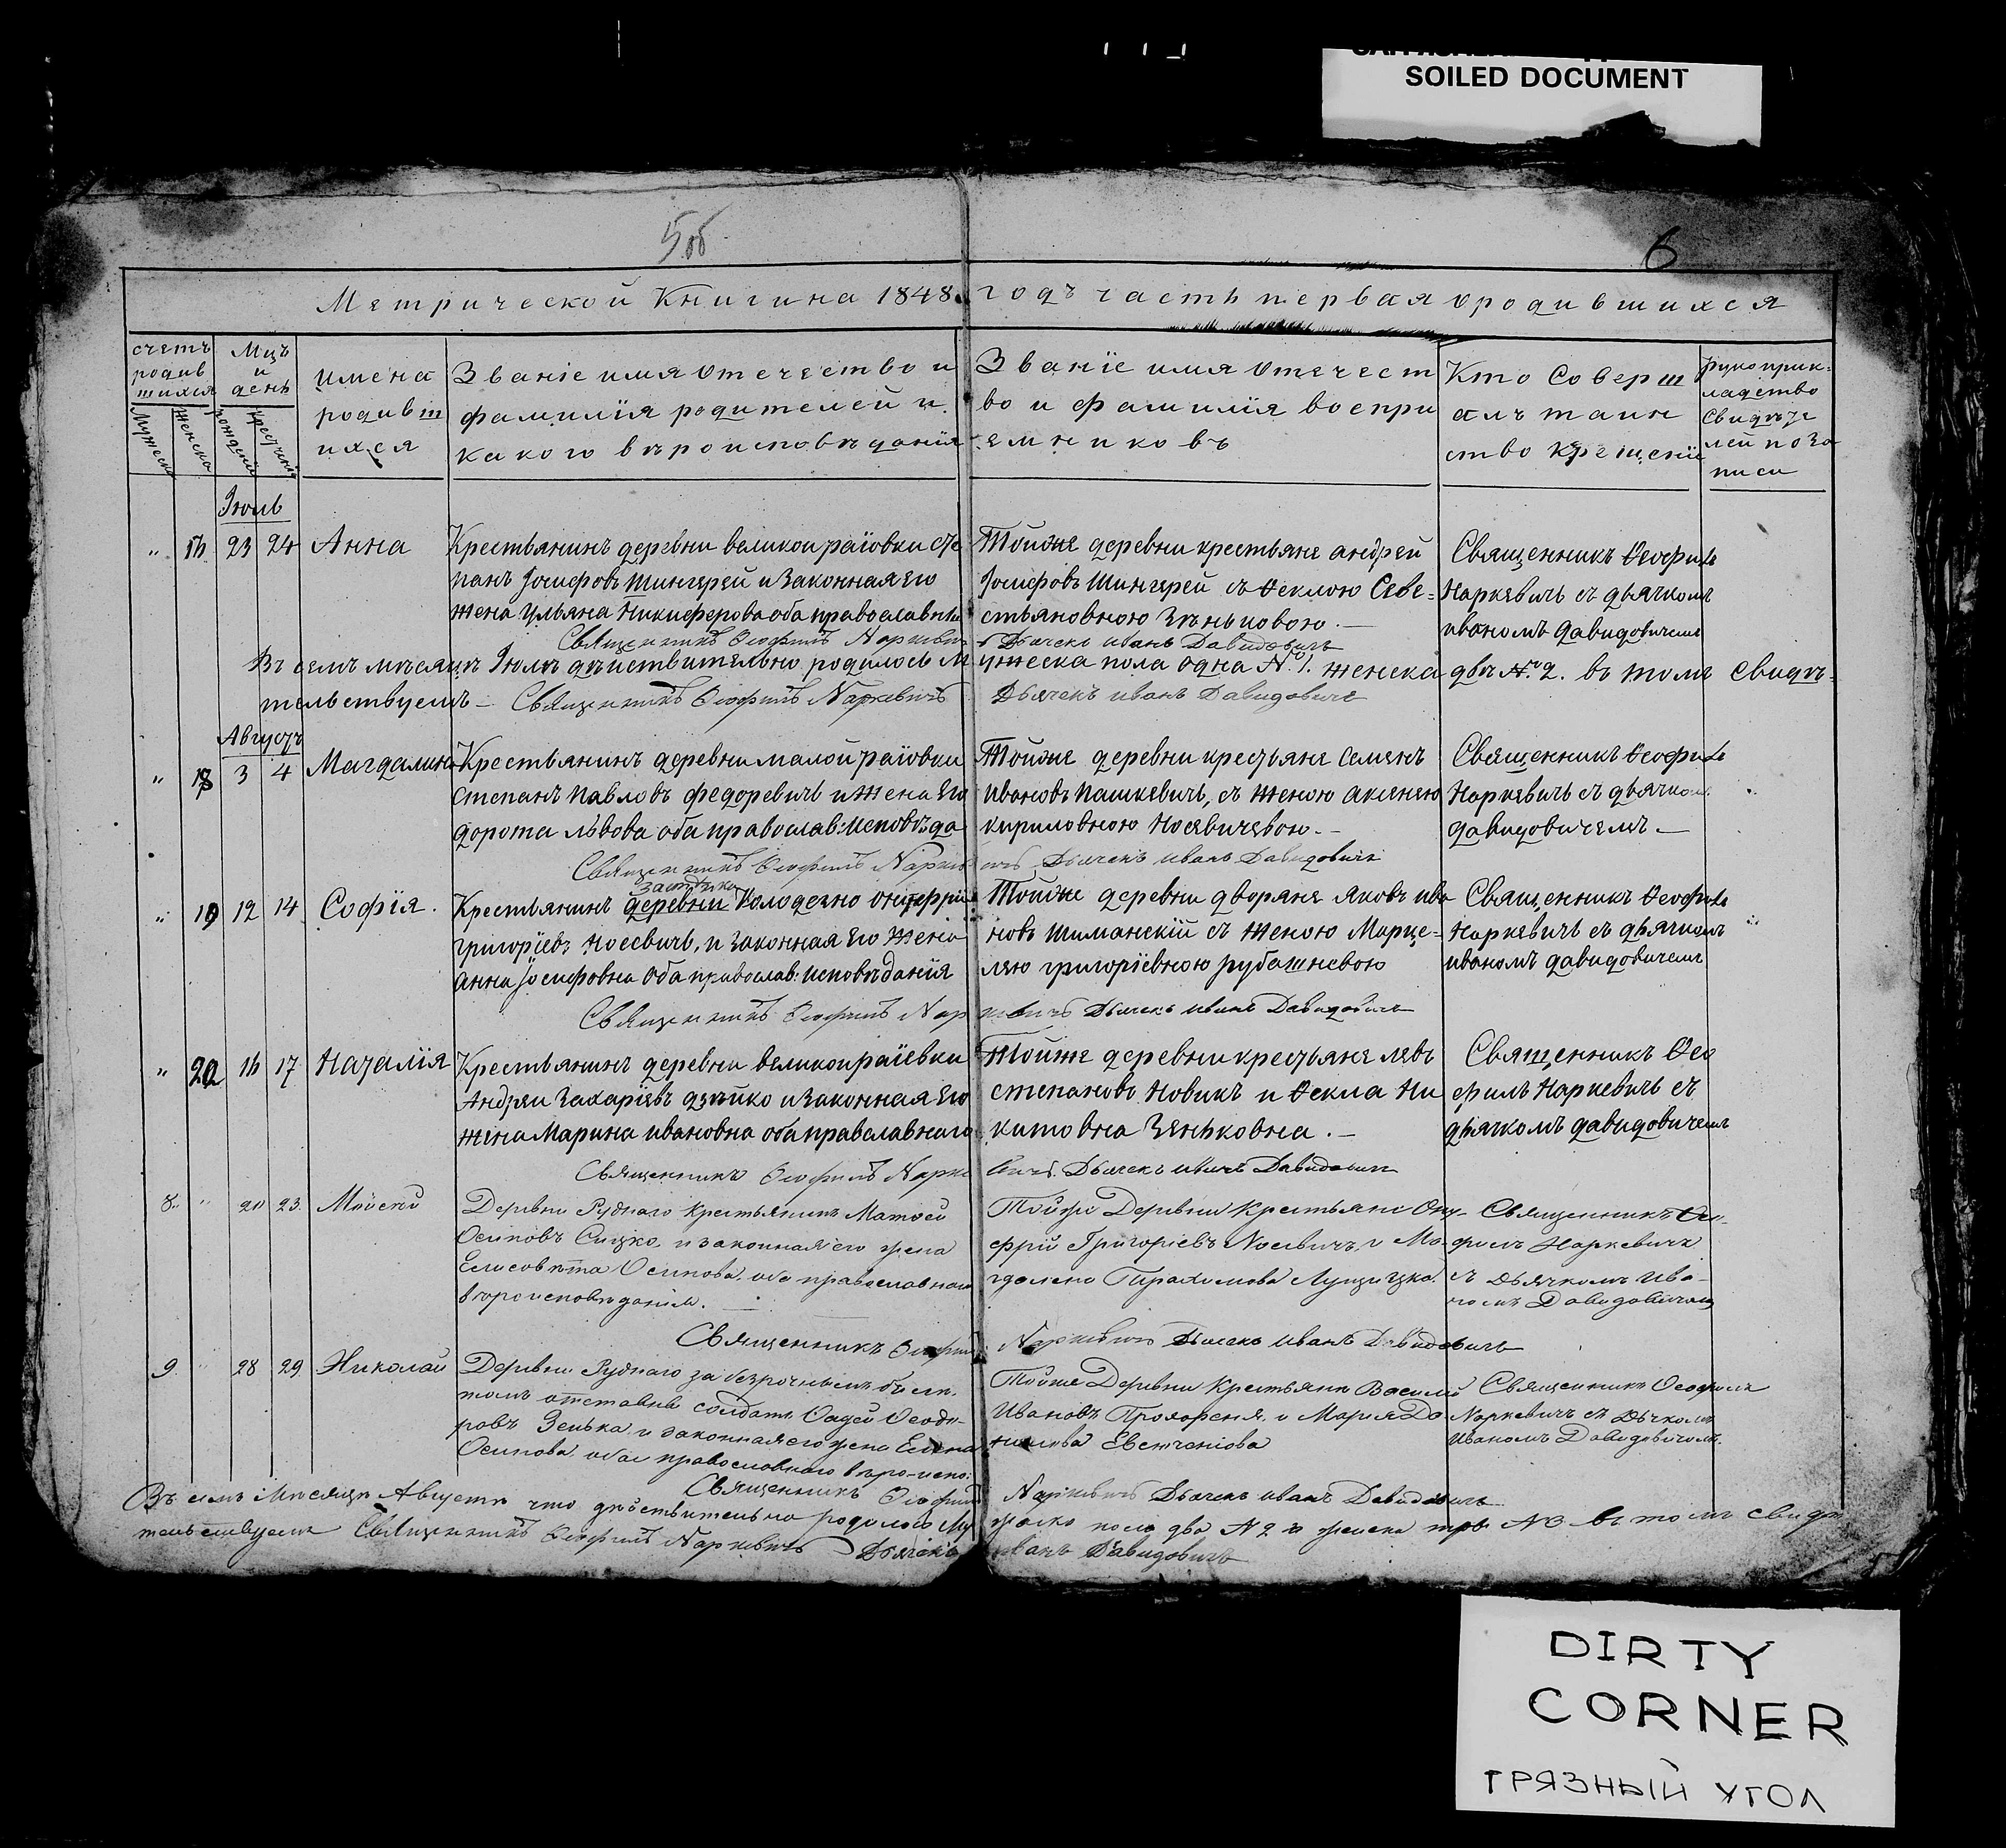 SOILED DOCUMENT
5об
6
Метрической Книги на 1848. годъ часть первая о родившихся
счетъ родившихся
Мужеска
Женска
Мцъ и день
рождені
крещені
имена родившихся
Званіе имя отечество и
фамилія родителей и
какого вѣроисповѣданія
Званіе имя отечест
во и фамилія воспри
емниковъ
Кто Соверш
алъ таин
ство крещенія
рукоприк-
ладство
Свидѣте
лей по за
писи
Іюль
„ 23 24 Анна
Крестьянинъ деревни великой раіовки сте
панъ Іосифовъ Шингерей и Законная Его
жена Ульяна Никиферова оба православны
Тойже деревни крестьяне андрей
Іосифовъ Шингерей съ Ѳеклою Севе-
стьяновною Зеньковою.—
Священникъ Ѳеофилъ
Наркевичъ съ дьячкомъ
иваномъ давидовичемъ
Священникъ Ѳеофилъ Наркевичъ Дьячекъ иванъ Давидовичъ
Въ семъ мѣсяцѣ Іюлѣ дѣйствительно родилось мужеска пола одна №1. женска двѣ №2. въ томъ свидѣ-
тельствуемъ – Священникъ Ѳеофилъ Наркевичъ Дьячекъ иванъ Давидовичъ
Августъ
„ 18 3 4 Магдалина
Крестьянинъ деревни малой раіовки
степанъ павловъ федоревичъ и жена Его
дорота львова оба православ: исповѣда
Тойже деревни крестьяне семенъ
ивановъ пашкевичъ, съ женою аксенею
кириловною Носевичевою.–
Священникъ Ѳеофилъ
Наркевичъ съ дьячком
давидовичемъ.—
Священникъ Ѳеофилъ Наркевичъ Дьячекъ иванъ Давидовичъ
застѣнка
„ 19 12 14 Софія.
Крестьянинъ деревни Колодезно онуфрій
григоріевъ носевичъ, и законная Его жена
анна Іосифовна оба православ: исповѣданія
Тойже деревни дворяне яковъ ива
новъ шиманскій съ женою Марце-
лею григоріевною рубашневою
Священникъ Ѳеофилъ
Наркевичъ съ дьячкомъ
иваномъ давидовичемъ
Священникъ Ѳеофилъ Наркевичъ Дьячекъ иванъ Давидовичъ
„ 20 16 17 Наталія
Крестьянинъ деревни великой раіевки
Андреи Захаріевъ дзейко и законная Его
жена Марина ивановна оба православнаго
Тойже деревни крестьяне левъ
степановъ Новикъ и Ѳекла Ни
китовна Зенковна.–
Священникъ Ѳео
филъ Наркевичъ съ
дьячкомъ давидовичемъ
Священникъ Ѳеофилъ Наркевичъ Дьячекъ иванъ Давидовичъ
8 „ 20 23 Моисей
Деревни Руднаго Крестьянинъ Матѳей
Осиповъ Сицко и законная его жена
Елисовѣта Осипова, оба православнаго
вѣроисповѣданія.
Тойже Деревни Крестьяне Ону-
фрій Григоріевъ Носевичъ и Ма-
гдалена Парахомова
Священникъ Ѳео-
филъ Наркевичъ
съ Дьячкомъ Ива-
номъ Давидовичемъ
Священникъ Ѳеофилъ Наркевичъ Дьячекъ иванъ Давидовичъ
9 „ 28 29 Николай
Деревни Руднаго за безрочнымъ биле-
томъ отставны солдатъ Фадей Ѳеодо-
ровъ Зенька и законная его жена Елена
Осипова, обае православнаго вѣро-испо:
Тойже Деревни Крестьяне Василій
Ивановъ Прохореня. и Марія Да
нилова
Священникъ Ѳеофилъ
Наркевичъ съ Дьчкомъ
Иваномъ Давидовичемъ.
Священникъ Ѳеофилъ Наркевичъ Дьячекъ иванъ Давидовичъ
Въ семъ Мѣсяцѣ Августѣ что дѣйствительно родилось Му жеска пола два №2 и женска три №3 въ томъ свидѣ
тельствуемъ Священникъ Ѳеофилъ Наркевичъ Дьячекъ иванъ Давидовичъ
DIRTY
CORNER
ГРЯЗНЫЙ УГОЛ